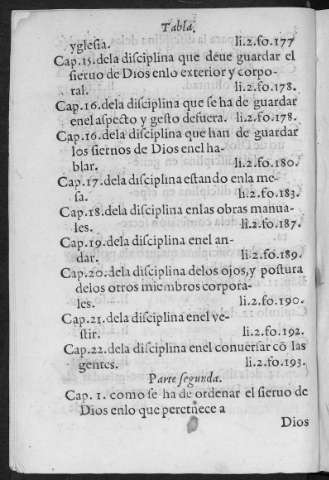 Tabla.
yglesia. li.2.fo.177
Cap.15.dela disciplina que deue guardar el
sieruo de Dios enlo exterior y corpo-
ral. li.2.fo.178.
Cap.16.dela disciplina que se ha de guardar
enel aspecto y gesto defuera. li.2.fo.178.
Cap.16.dela disciplina que han de guardar
los siernos de Dios enel ha-
blar. li.2.fo.180.
Cap.17.dela disciplina estando enla me-
sa. li.2.fo.183.
Cap.18.dela disciplina enlas obras manua-
les. li.2.fo.187.
Cap.19.dela disciplina enel an-
dar. li.2.fo.189.
Cap.20.dela disciplina delos ojos,y postura
delos otros miembros corpora-
les. li.2.fo.190.
Cap.21.dela disciplina enel ve-
stir. li.2.fo.192.
Cap.22.dela disciplina enel conuersar cõ las
gentes. li.2.fo.193.
Parte segunda.
Cap. 1. como se ha de ordenar el sieruo de
Dios enlo que pertenece a
Dios